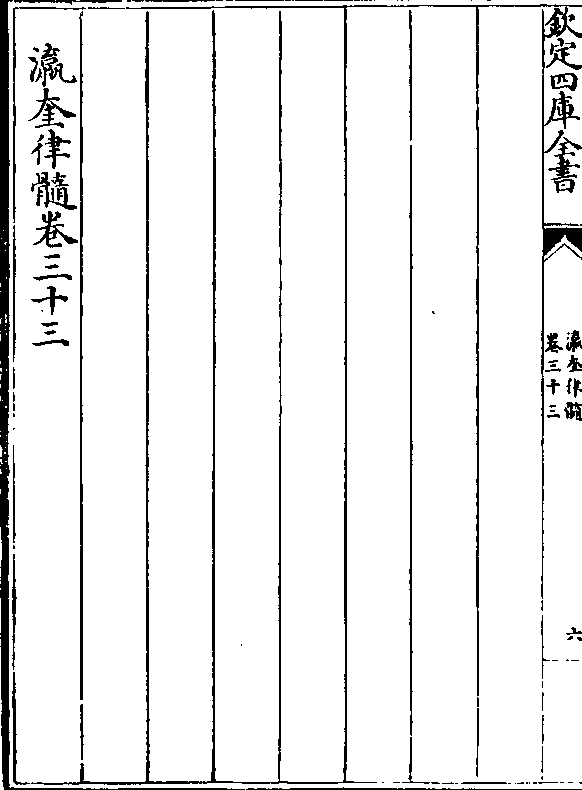 欽定四庫全書
瀛奎律髓
卷三十三
六
瀛奎律髓卷三十三